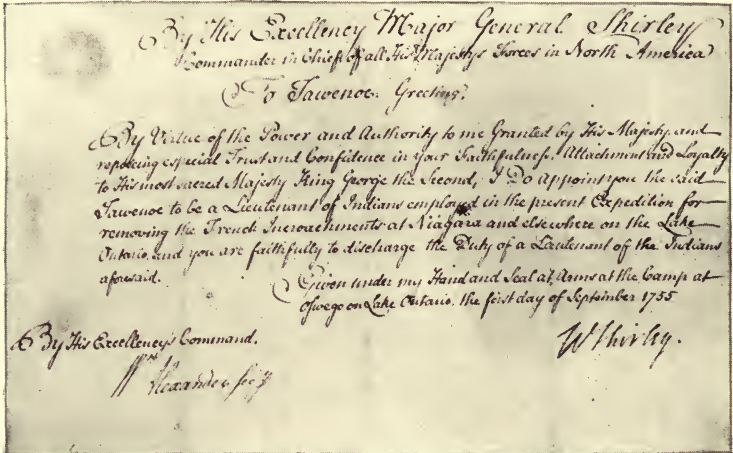 By His Excellency Major General Shirley
Commander in Chief of all His Majestys Forces in North America
To Tawenoe Greeting.
By Virtue of the Power and Authority to me Granted by His Majesty, and
reposing especial Trust and Confidence in your Faithfulness, Attachment and Loyalty
to His most sacred Majesty King George the Second, I Do Appoint you the said
Tawenoe to be a Lieutenant of Indians employed in the present Expedition for
removing the French Incroachments at Niagara and elsewhere on the Lake
Ontario, and you are faithfully to discharge the Duty of a Lieutenant of the Indians
aforesaid.
Given under my Hand and Seal at Arms at the Camp at
Oswego on Lake Ontario, the first day of September 1755
W Shirley.
By His Excellency's Command.
Wm Alexander Secy